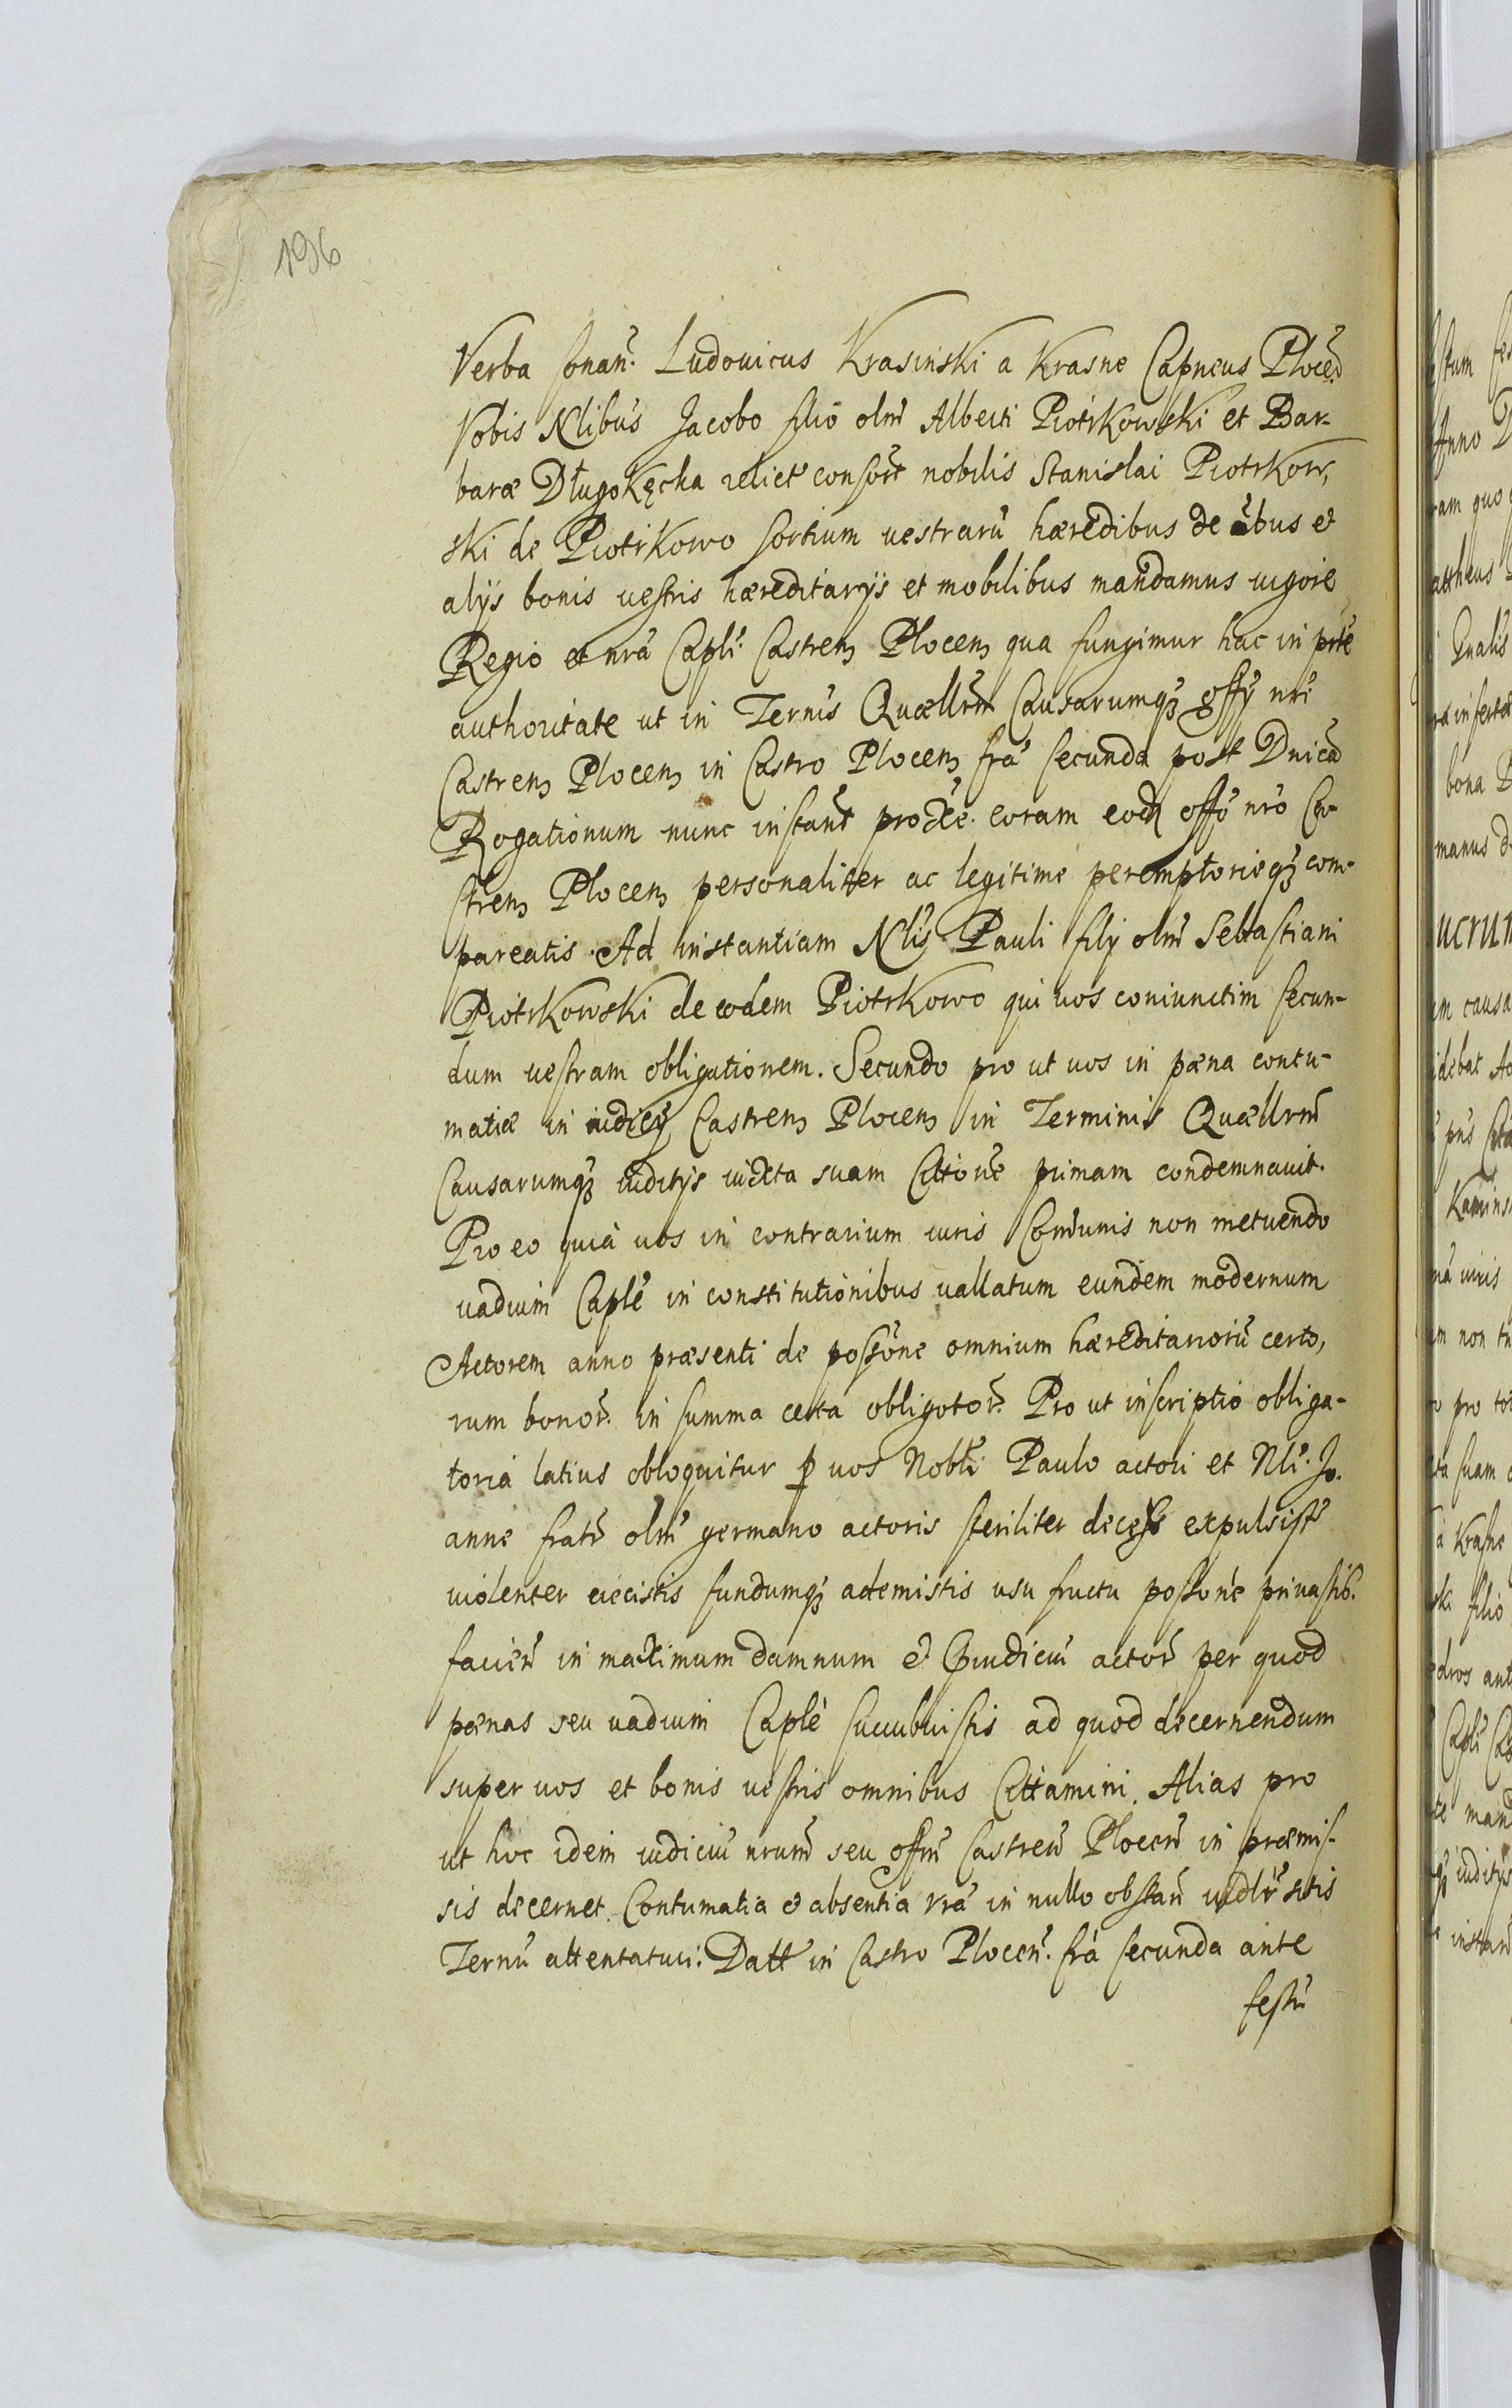 196
Verba sonañ. Ludovicus Krasinski a Krasne Capneus Ploceñ
Vobis Nlibus Jacobo filio olm̃ Alberti Piotrkowski et Bar-
baræ Długokęcka relictæ consort̃ nobilis Stanislai Piotrkow,
ski de Piotrkowo sortium vestrarũ hæredibus de õbus et
alys bonis vestris hæreditarijs et mobilibus mandamus vigore
Regio et nrã Capli. Castreñ Ploceñ qua fungimur hac in prte
authoritate ut in Ternis Quællrm̃ Causarumq₃ offy nri
Castreñ Ploceñ in Castro Ploceñ fra secunda post Dnicã
Rogationum nunc instant̃ proxe. coram eod offo nro Ca-
streñ Ploceñ personaliter ac legitime peremptorieq₃ com-
pareatis. Ad instantiam Nlis Pauli fily olm̃ Sebastiani
Piotrkowski de eodem Piotrkowo qui vos coniunctim secun-
dum vestram obligationem. Secundo pro ut vos in pæna contu-
matiæ in iudicÿ Castreñ Ploceñ in Terminis Quællrm̃
Causarumq₃ iuditijs iuxta suam Cittõne primam condemnavit.
Pro eo quia vos in contrarium iuris Com̃unis non metuendo
vadium Caple in constitutionibus vallatum eundem modernum
Actorem anno præsenti de possone omnium hæreditariorũ certo,
rum bonor. in summa certa obligator. Pro ut inscriptio obliga-
toria latius obloquitur p vos Nobli Paulo actori et Nli. Jo.
anne fratr̃ olm̃ germano actoris steriliter decess expulsist̃
violenter eiecistis fundumq₃ ademistis usu fructu possone privastis.
facieñ in maximum damnum et Ppiudiciũ actor̃ per quod
pænas seu vadium Caple succubuistis ad quod decernendum
super vos et bonis vestris omnibus Cittamini. Alias pro
ut hoc idem iudiciũ nrum seu offm̃ Castreñ Ploceñ in præmis-
sis decernet. Contumatia et absentia vra in nullo obstañ iudlr̃ sitis
Ternũ attentaturi. Datt in Castro Ploceñ. fra secunda ante
festũ